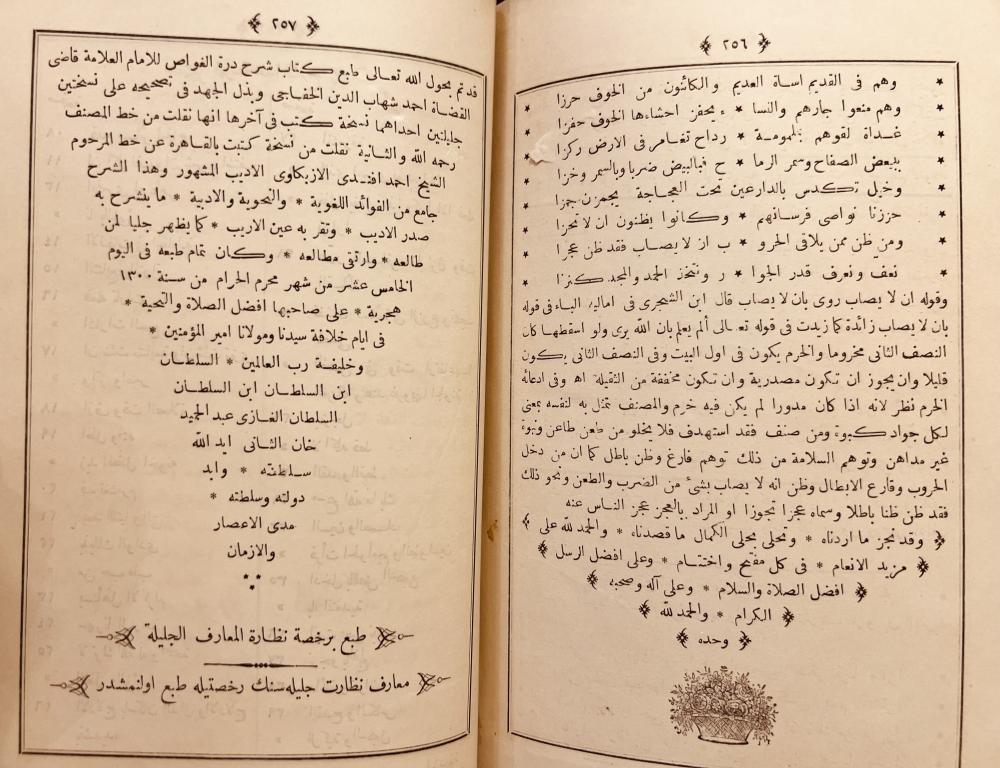 ٢٥٦
وهم فى القديم اساة العديم * والكائنون من الخوف حرزا
وهم منعوا جارهم والنسا * ء يحفز احشاءها الخوف حفزا
غداة لقوهم بملمومة * رداح تغامر فى الارض ركزا
ببعض الصفاح وسمر الرما * ح فبالبيض ضربا وبالسمر وخزا
وخيل تكدس بالدارعين تحت العجاجة يجمزن جمزا
حززنا نواصى فرسانهم * وكانوا يظنون ان لا تحزا
ومن ظن ممن يلاقى الحرو * ب ان لا يصاب فقد ظن عجزا
نعف ونعرف قدر الجوا * ر ونتخذ الحمد والمجد كنزا
وقوله ان لا يصاب روى بان لا يصاب قال ابن الشجرى فى اماليه الباء فى قوله
بان لا يصاب زائدة كما زيدت فى قوله تعالى ألم يعلم بان الله يرى ولو اسقطها كان
النصف الثانى مخروما والخرم يكون فى اول البيت وفى النصف الثانى يكون
قليلا وان يجوز ان تكون مصدرية وان تكون مخففة من الثقيلة اه وفى ادعائه
الخرم نظر لانه اذا كان مدورا لم يكن فيه خرم والمصنف تمثل به لنفسه بمعنى
لكل جواد كبوة ومن صنف فقد استهدف فلا يخلو من طعن طاعن ونبوة
غير مداهن وتوهم السلامة من ذلك توهم فارغ وظن باطل كما ان من دخل
الحروب وقارع الابطال وظن انه لا يصاب بشئ من الضرب والطعن ونحو ذلك
فقد ظن ظنا باطلا وسماه عجزا تجوزا او المراد بالعجز عجز الناس عنه
وقد نجز ما اردناه * وتحلى بحلى الكمال ما قصدناه * والحمد لله على
مزيد الانعام * فى كل مفتح واختتام * وعلى افضل الرسل
افضل الصلاة والسلام * وعلى آله وصحبه
الكرام * والحمد لله
وحده
٢٥٧
قد تم بحول الله تعالى طبع كتاب شرح درة الغواص للامام العلامة قاضى
القضاة احمد شهاب الدين الخفاجى وبذل الجهد فى تصحيحه على نسختين
جليلتين احداهما نسخة كتب فى آخرها انها نقلت من خط المصنف
رحمه الله والثانية نقلت من نسخة كتبت بالقاهرة عن خط المرحوم
الشيخ احمد افندى الازبكاوى الاديب المشهور وهذا الشرح
جامع من الفوائد اللغوية * والنحوية والادبية * ما ينشرح به
صدر الاديب * وتقر به عين الاريب * كما يظهر جليا لمن
طالعه * وارتقى مطالعه * وكان تمام طبعه فى اليوم
الخامس عشر من شهر محرم الحرام من سنة ١٣٠٠
هجرية * على صاحبها افضل الصلاة والتحية *
فى ايام خلافة سيدنا ومولانا امير المؤمنين *
وخليفة رب العالمين * السلطان
ابن السلطان ابن السلطان
السلطان الغازى عبد الحميد
خان الثانى ايد الله
سلطنته * وابد
دولته وسلطته *
مدى الاعصار
والازمان
طبع برخصة نظارة المعارف الجليلة
معارف نظارت جليله‌سنك رخصتيله طبع اولنمشدر